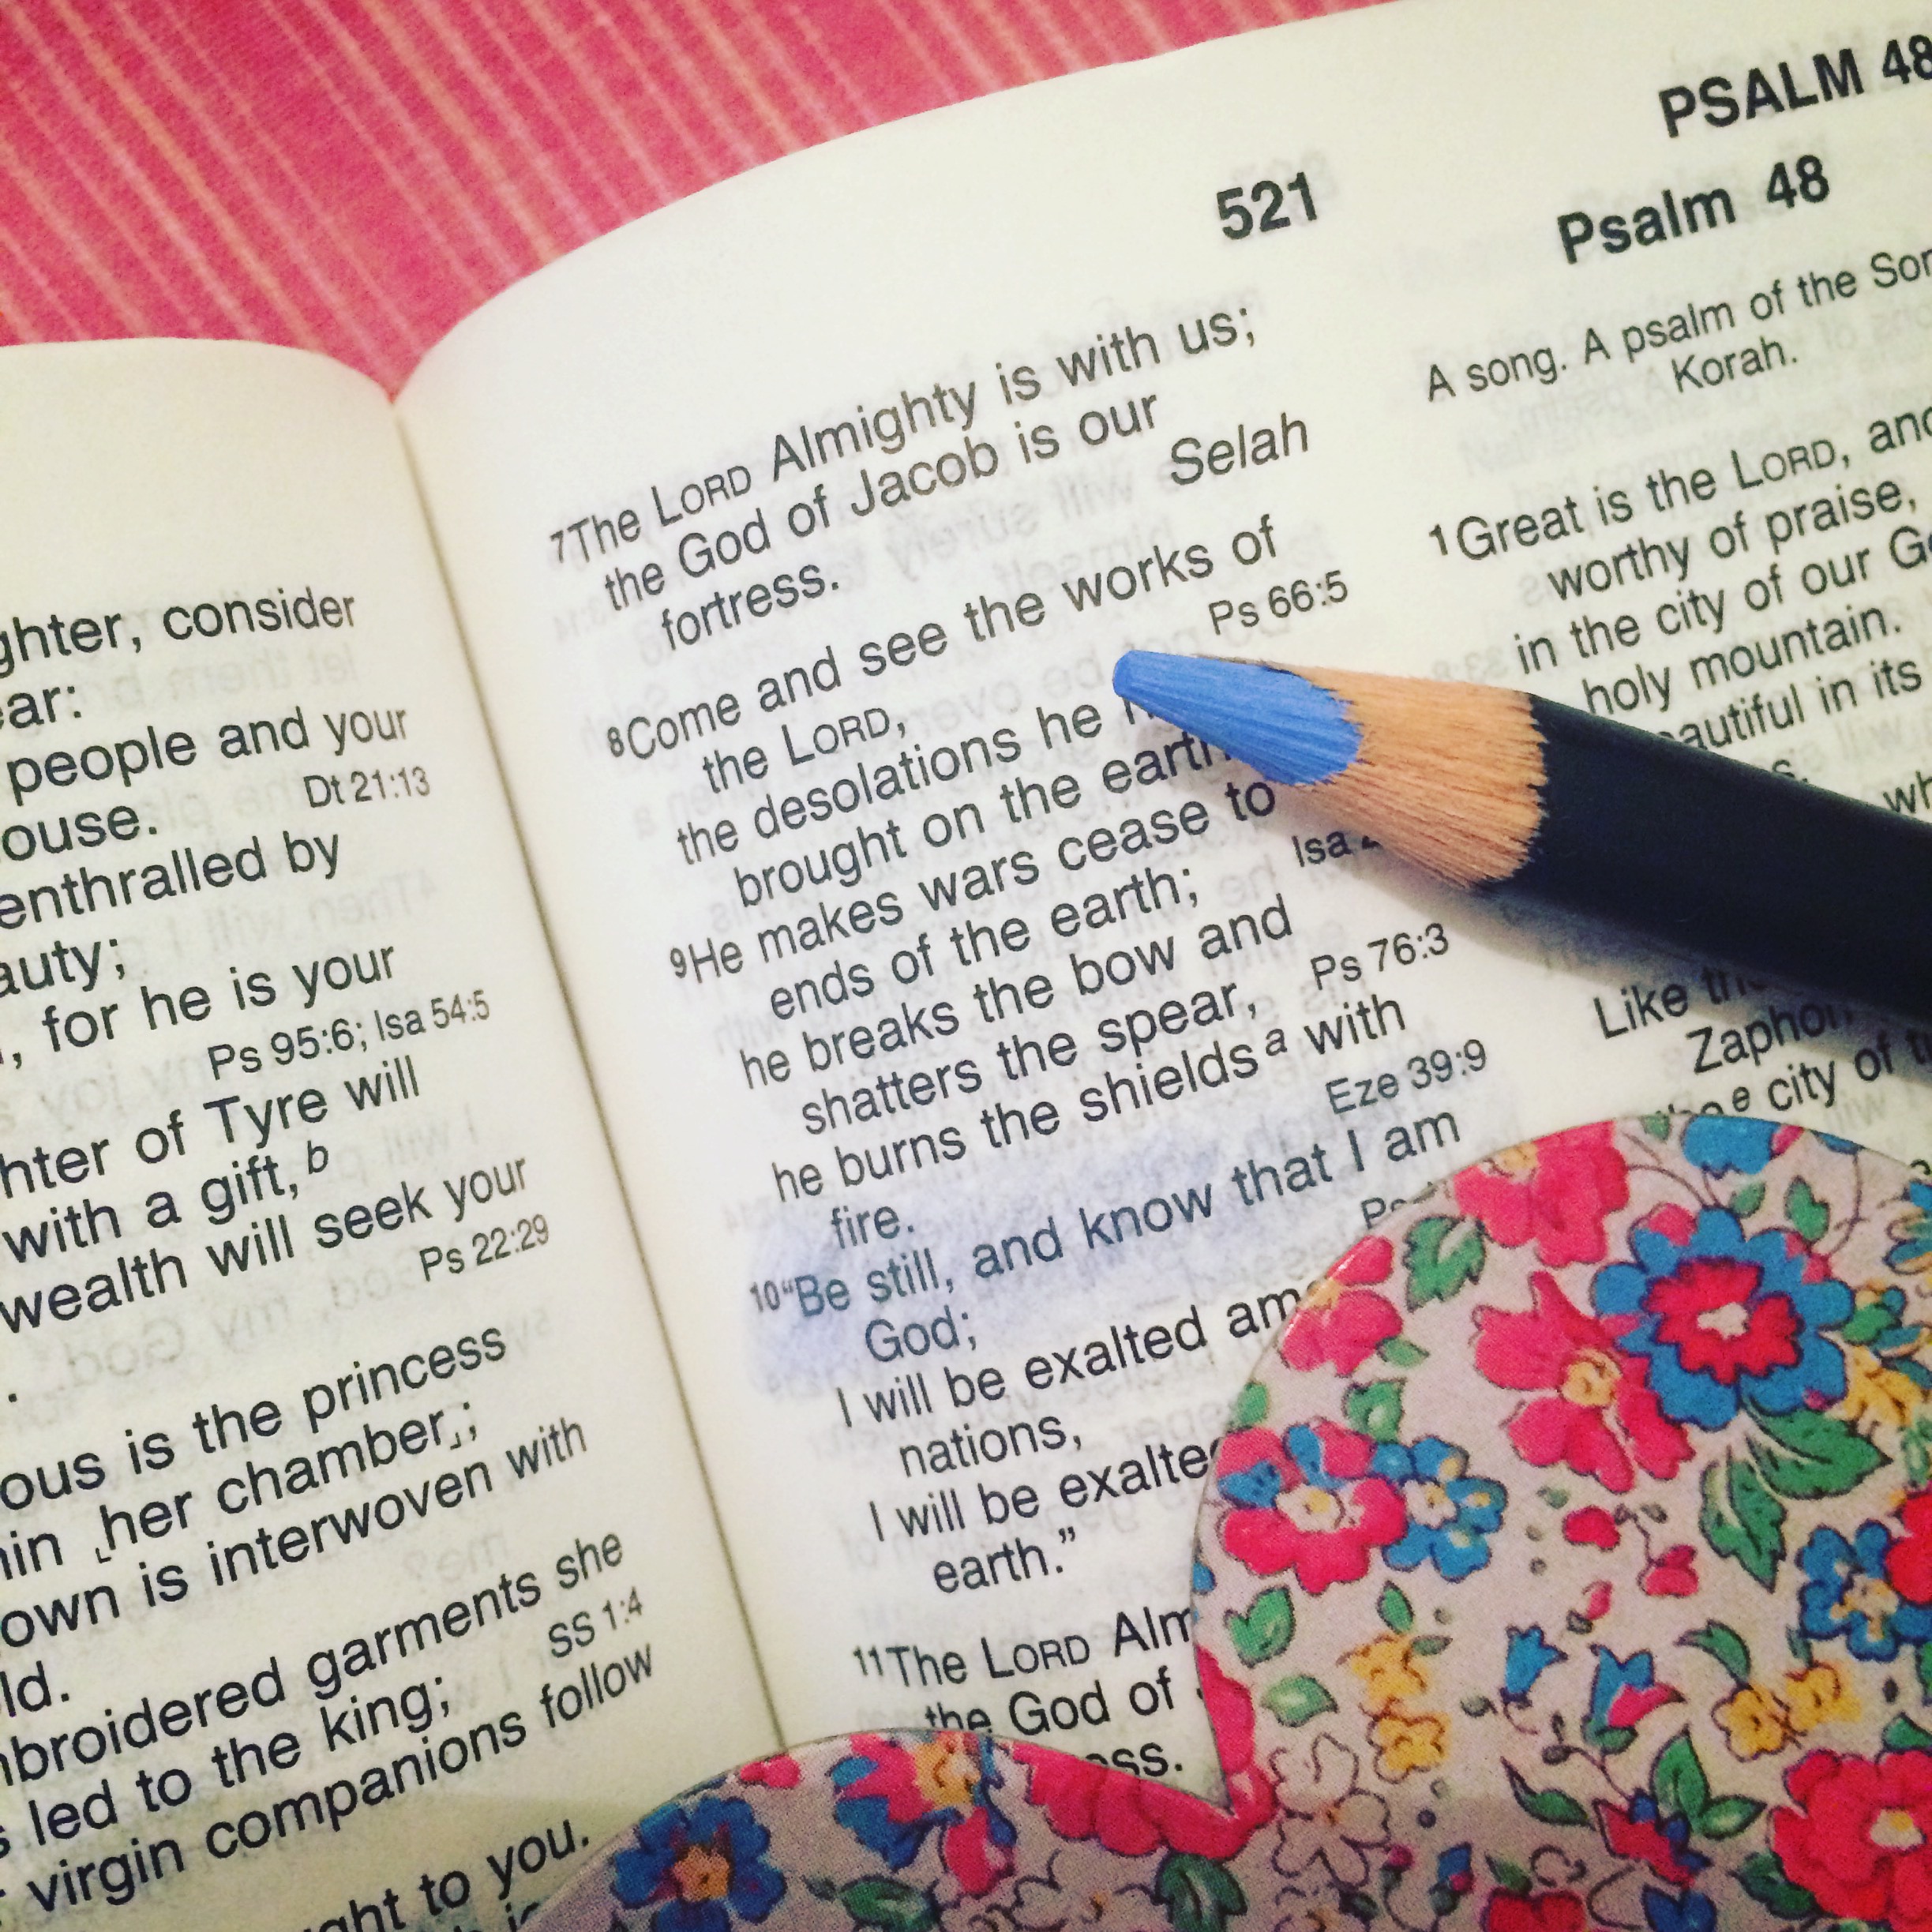 consider
people and your
Dt 21:13
enthralled by
, for he is your
Ps 95:6; Isa 54:5
of Tyre will
with a gift, b
wealth will seek your
Ps 22:29
.
is the princess
her chamber;
is interwoven with
garments she
SS 1:4
led to the king;
virgin companions follow
to you.
521
7The LORD Almighty is with us;
the God of Jacob is our
fortress. Selah
8Come and see the works of
the LORD, Ps 66:5
the desolations he
brought on the earth
9He makes wars cease to
ends of the earth; Isa
he breaks the bow and
shatters the spear, Ps 76:3
he burns the shields a with
fire. Eze 39:9
10“Be still, and know that I am
God;
I will be exalted
nations,
I will be exalted
earth.”
11The LORD
the God of
PSALM 48
Psalm 48
A song. A psalm of the
Korah.
1Great is the LORD, and
worthy of praise,
in the city of our
holy mountain.
in its
Like
Zaphon
e city of